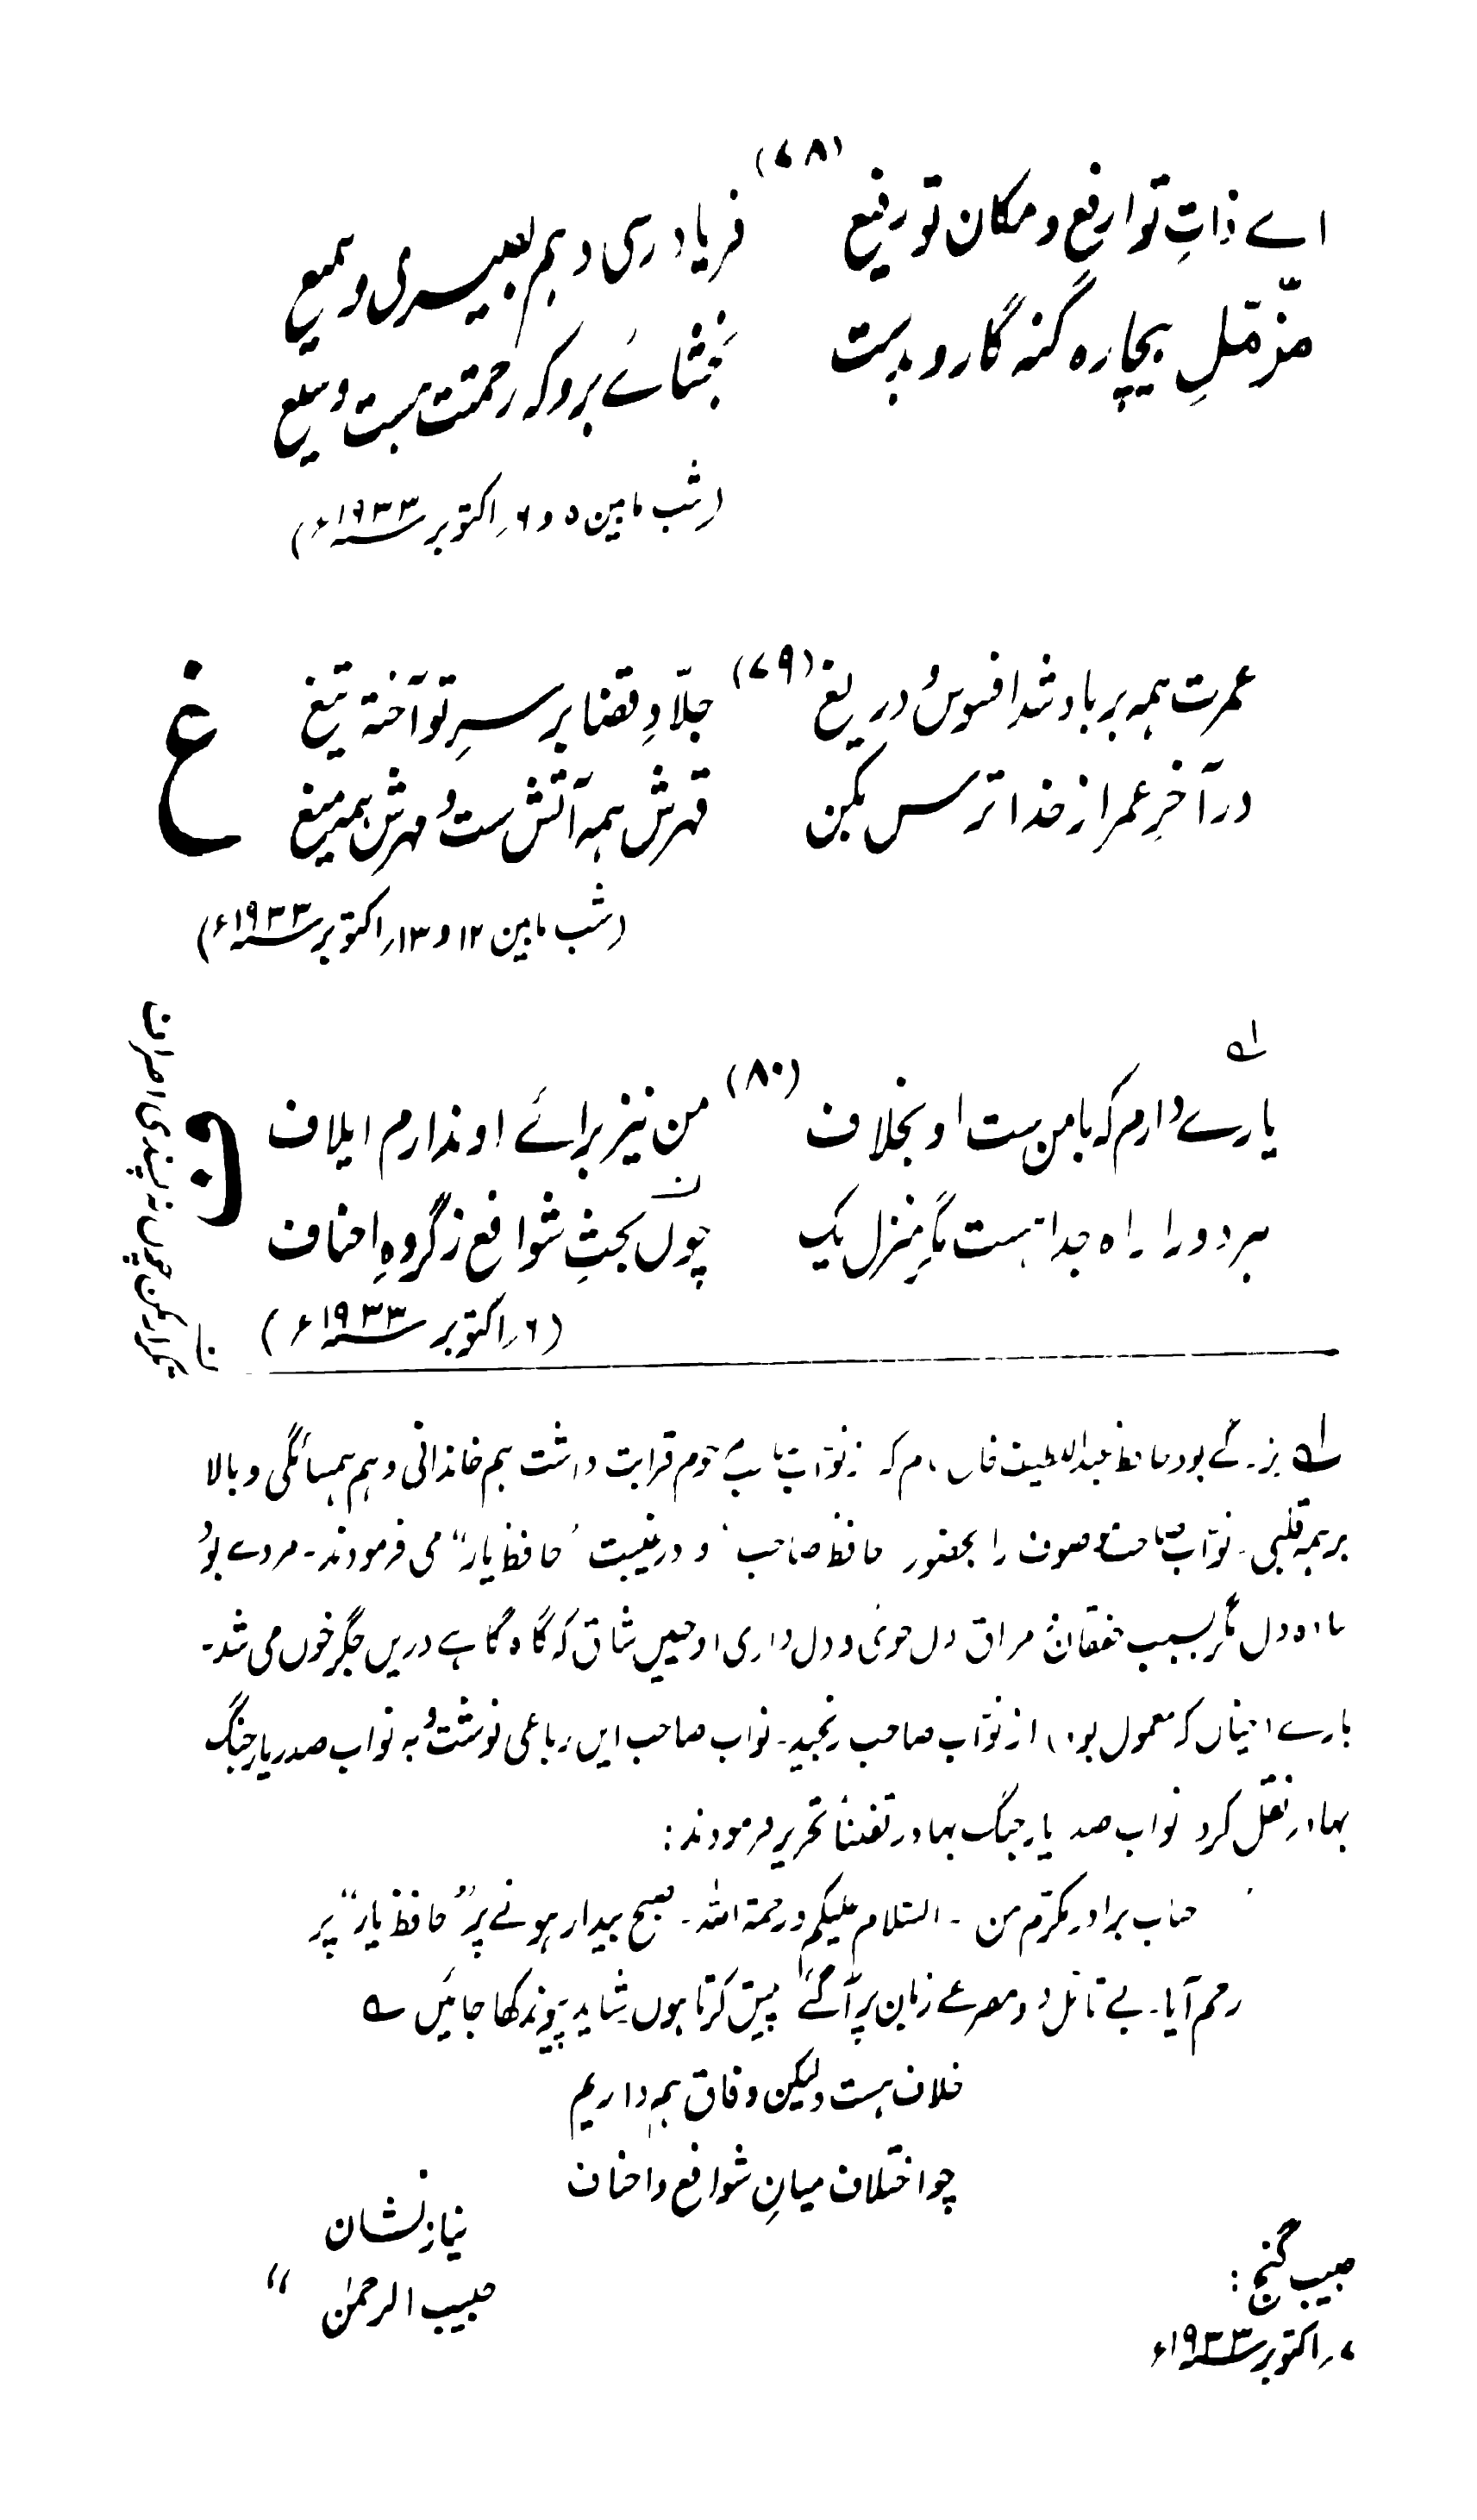 (۷۸)
اے ذاتِ تو ارفع و مکان تو رفیع
فریاد رسی و ہم بصیری و سمیع
مزّمّلِ بیچارہ گنہ گار و بدست
بخشائے برو کہ رحمتت ہست وسیع
(شب مابین ۵ و ۶؍ اکتوبر ۱۹۳۳ء)
غ
(۷۹)
عمرت ہمہ برباد شد افسوس دریغ
جلّادِ قضا بر سرِ تو آختہ تیغ
در آخرِ عمر از خدا ترس بکن
قہرش ہمہ آتش ست و مہرش ہمہ میغ
(شب مابین ۱۲ و ۱۳؍ اکتوبر ۱۹۳۳ء)
ف
(۸۰)
یارے دارم کہ با من ہست او بخلاف
من نیز برائے او ندارم ایلاف
ہر دو را راہ جدا ہست مگر منزل یک
چوں بحثِ شوافع ز گروہِ احناف
(۶؍ اکتوبر ۱۹۳۳ء)
لہ بزرگے بود حافظ عبداللطیف خاں نام کہ بہ نوّاب صاحب مرحوم قرابت داشت ہم خاندانی و ہم ہمسائگی و بالا
بر ہمہ قلبی۔ نوّاب صاحب موصوف را بحضور حافظ صاحب و در غیبت "حافظ یار" می فرمودند۔ مردے بود
سادہ دل مگر بسبب خفقان و مراق دل جوئی و دل داری او چنیں شاق کہ گاہ گاہے دریں جگر خوں می شد۔
بارے (چناں کہ معمول بود) از نوّاب صاحب رنجید۔ نواب صاحب ایں رباعی نوشت و بہ نواب صدر یار جنگ
بہادر نقل کرد نواب صدر یار جنگ بہادر تفنناً تحریر فرمودند:
"جناب برادر مکرّم من ۔ السّلام علیکم و رحمۃ اللہ۔ صبح بیدار ہونے پر "حافظ یار" پر
رحم آیا۔ بے تامّل دو مصرعے زبان پر آگئے پیش کرتا ہوں شاید پیوند کھا جائیں ؎
خلاف ہست ولیکن وفاق ہم داریم
چو اختلاف میانِ شوافع و احناف
نیاز نشان
حبیب الرحمٰن "
حبیب گنج:
۷؍ اکتوبر ۱۹۳۳ء